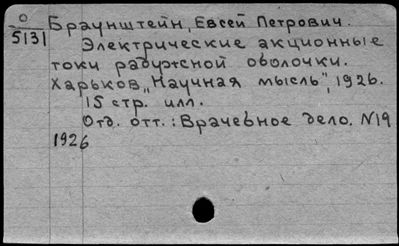 О
5131
Браунштейн, Евсей Петрович.
Электрические акционные
токи радужной оболочки.
Харьков „Научная мысль”, 1926.
15 стр. илл.
Отд. отт.: Врачебное дело. N19
1926